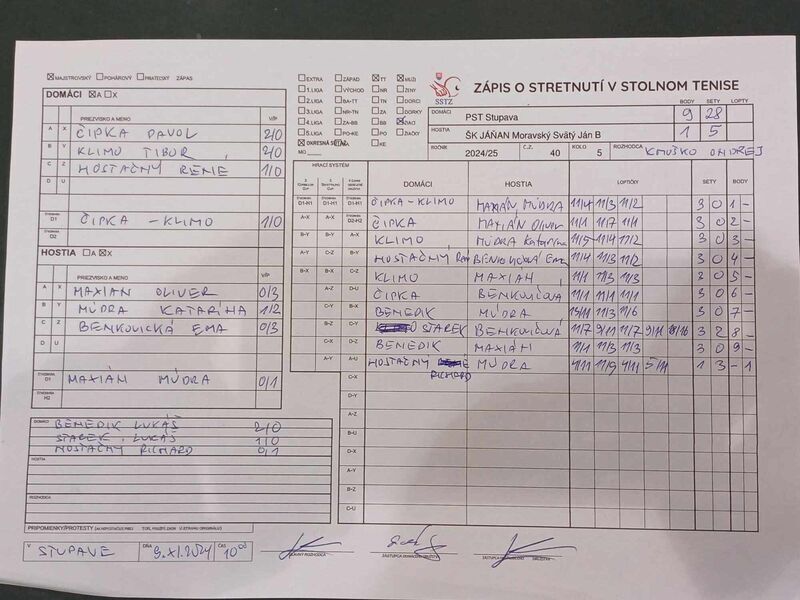 MAJSTROVSKÝ POHÁROVÝ PRIATEĽSKÝ ZÁPAS
DOMÁCI A X
PRIEZVISKO A MENO V/P
A X ČIPKA PAVOL 2/0
B Y KLIMO TIBOR 2/0
C Z HOSTAČNÝ RENE 1/0
D U
D1 ČIPKA - KLIMO 1/0
D2
HOSTIA A X
PRIEZVISKO A MENO V/P
A X MAXIAN OLIVER 0/3
B Y MÚDRA KATARÍNA 1/2
C Z BENKOVICKÁ EMA 0/3
D U
D1 MAXIÁN MÚDRA 0/1
H2
DOMÁCI BENEDIK LUKÁŠ 2/0
STAREK LUKÁŠ 1/0
HOSTAČNÝ RICHARD 0/1
HOSTIA
ROZHODCA
PRIPOMIENKY/PROTESTY
V STUPAVE DŇA 9.XI.2024 ČAS 10°°
EXTRA ZÁPAD TT MUŽI
1.LIGA VÝCHOD NR ŽENY
2.LIGA BA-TT TN DORCI
3.LIGA NR-TN ZA DORKY
4.LIGA ZA-BB BB ŽIACI
5.LIGA PO-KE PO ŽIAČKY
OKRESNÁ SÚŤAŽ KE
MO
SSTZ
ZÁPIS O STRETNUTÍ V STOLNOM TENISE
BODY SETY LOPTY
DOMÁCI PST Stupava 9 28
HOSTIA ŠK JÁŇAN Moravský Svätý Ján B 1 5
ROČNÍK 2024/25 Č.Z. 40 KOLO 5 ROZHODCA KMUŠKO ONDREJ
HRACÍ SYSTÉM
DOMÁCI HOSTIA LOPTIČKY SETY BODY
D1-H1 D1-H1 D1-H1 ČIPKA-KLIMO MAXIÁN MÚDRA 11/4 11/3 11/2 3 0 1 -
A-X A-X D2-H2 ČIPKA MAXIÁN OLIVER 11/1 11/7 11/1 3 0 2 -
B-Y B-Y A-X KLIMO MÚDRA KATARÍNA 11/5 11/4 11/2 3 0 3 -
A-Y C-Z B-Y HOSTAČNÝ BENKOVIČOVÁ EMA 11/4 11/3 11/2 3 0 4 -
B-X B-X C-Z KLIMO MAXIÁN 11/1 11/3 11/3 3 0 5 -
A-Z D-U ČIPKA BENKOVIČOVÁ 11/1 11/1 11/1 3 0 6 -
C-Y B-X BENEDIK MÚDRA 15/11 11/3 11/6 3 0 7 -
B-Z C-Y STAREK BENKOVIČOVÁ 11/7 9/11 11/7 9/11 3 2 8 -
C-X D-Z BENEDIK MAXIÁN 11/1 11/3 11/3 3 0 9 -
A-Y A-U HOSTAČNÝ RICHARD MÚDRA 4/11 11/9 4/11 5/11 1 3 - 1
C-X
D-Y
A-Z
B-U
D-X
A-Y
B-Z
C-U